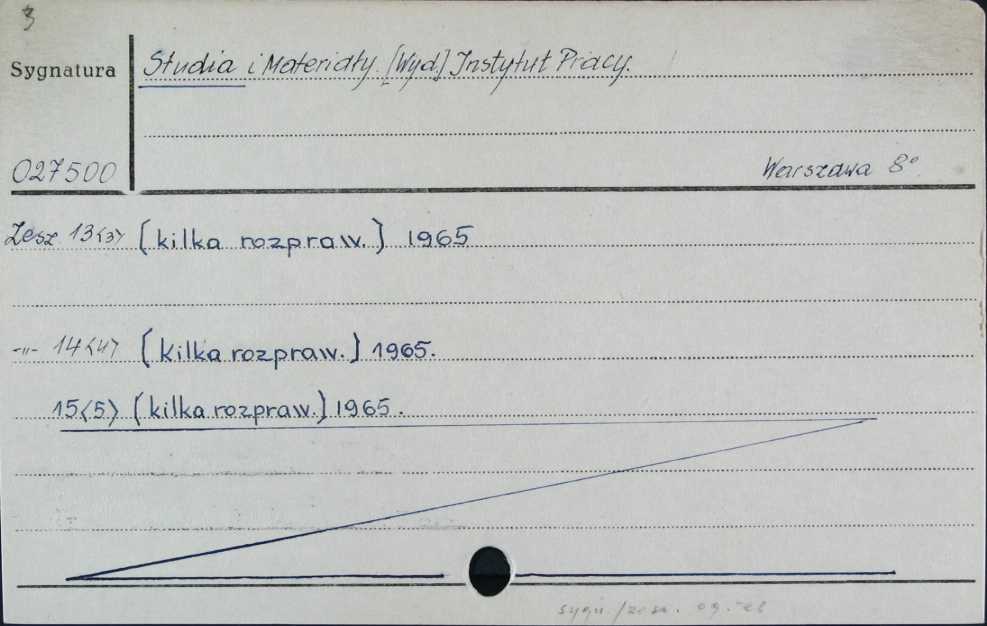 3
Sygnatura
Studia i Materiały. [Wyd.] Instytut Pracy.
027500
Warszawa 8°
Zesz 13<3> [kilka rozpraw.] 1965
-"- 14<4> [kilka rozpraw.] 1965.
15<5> [kilka rozpraw.] 1965.
sygn./zesz.